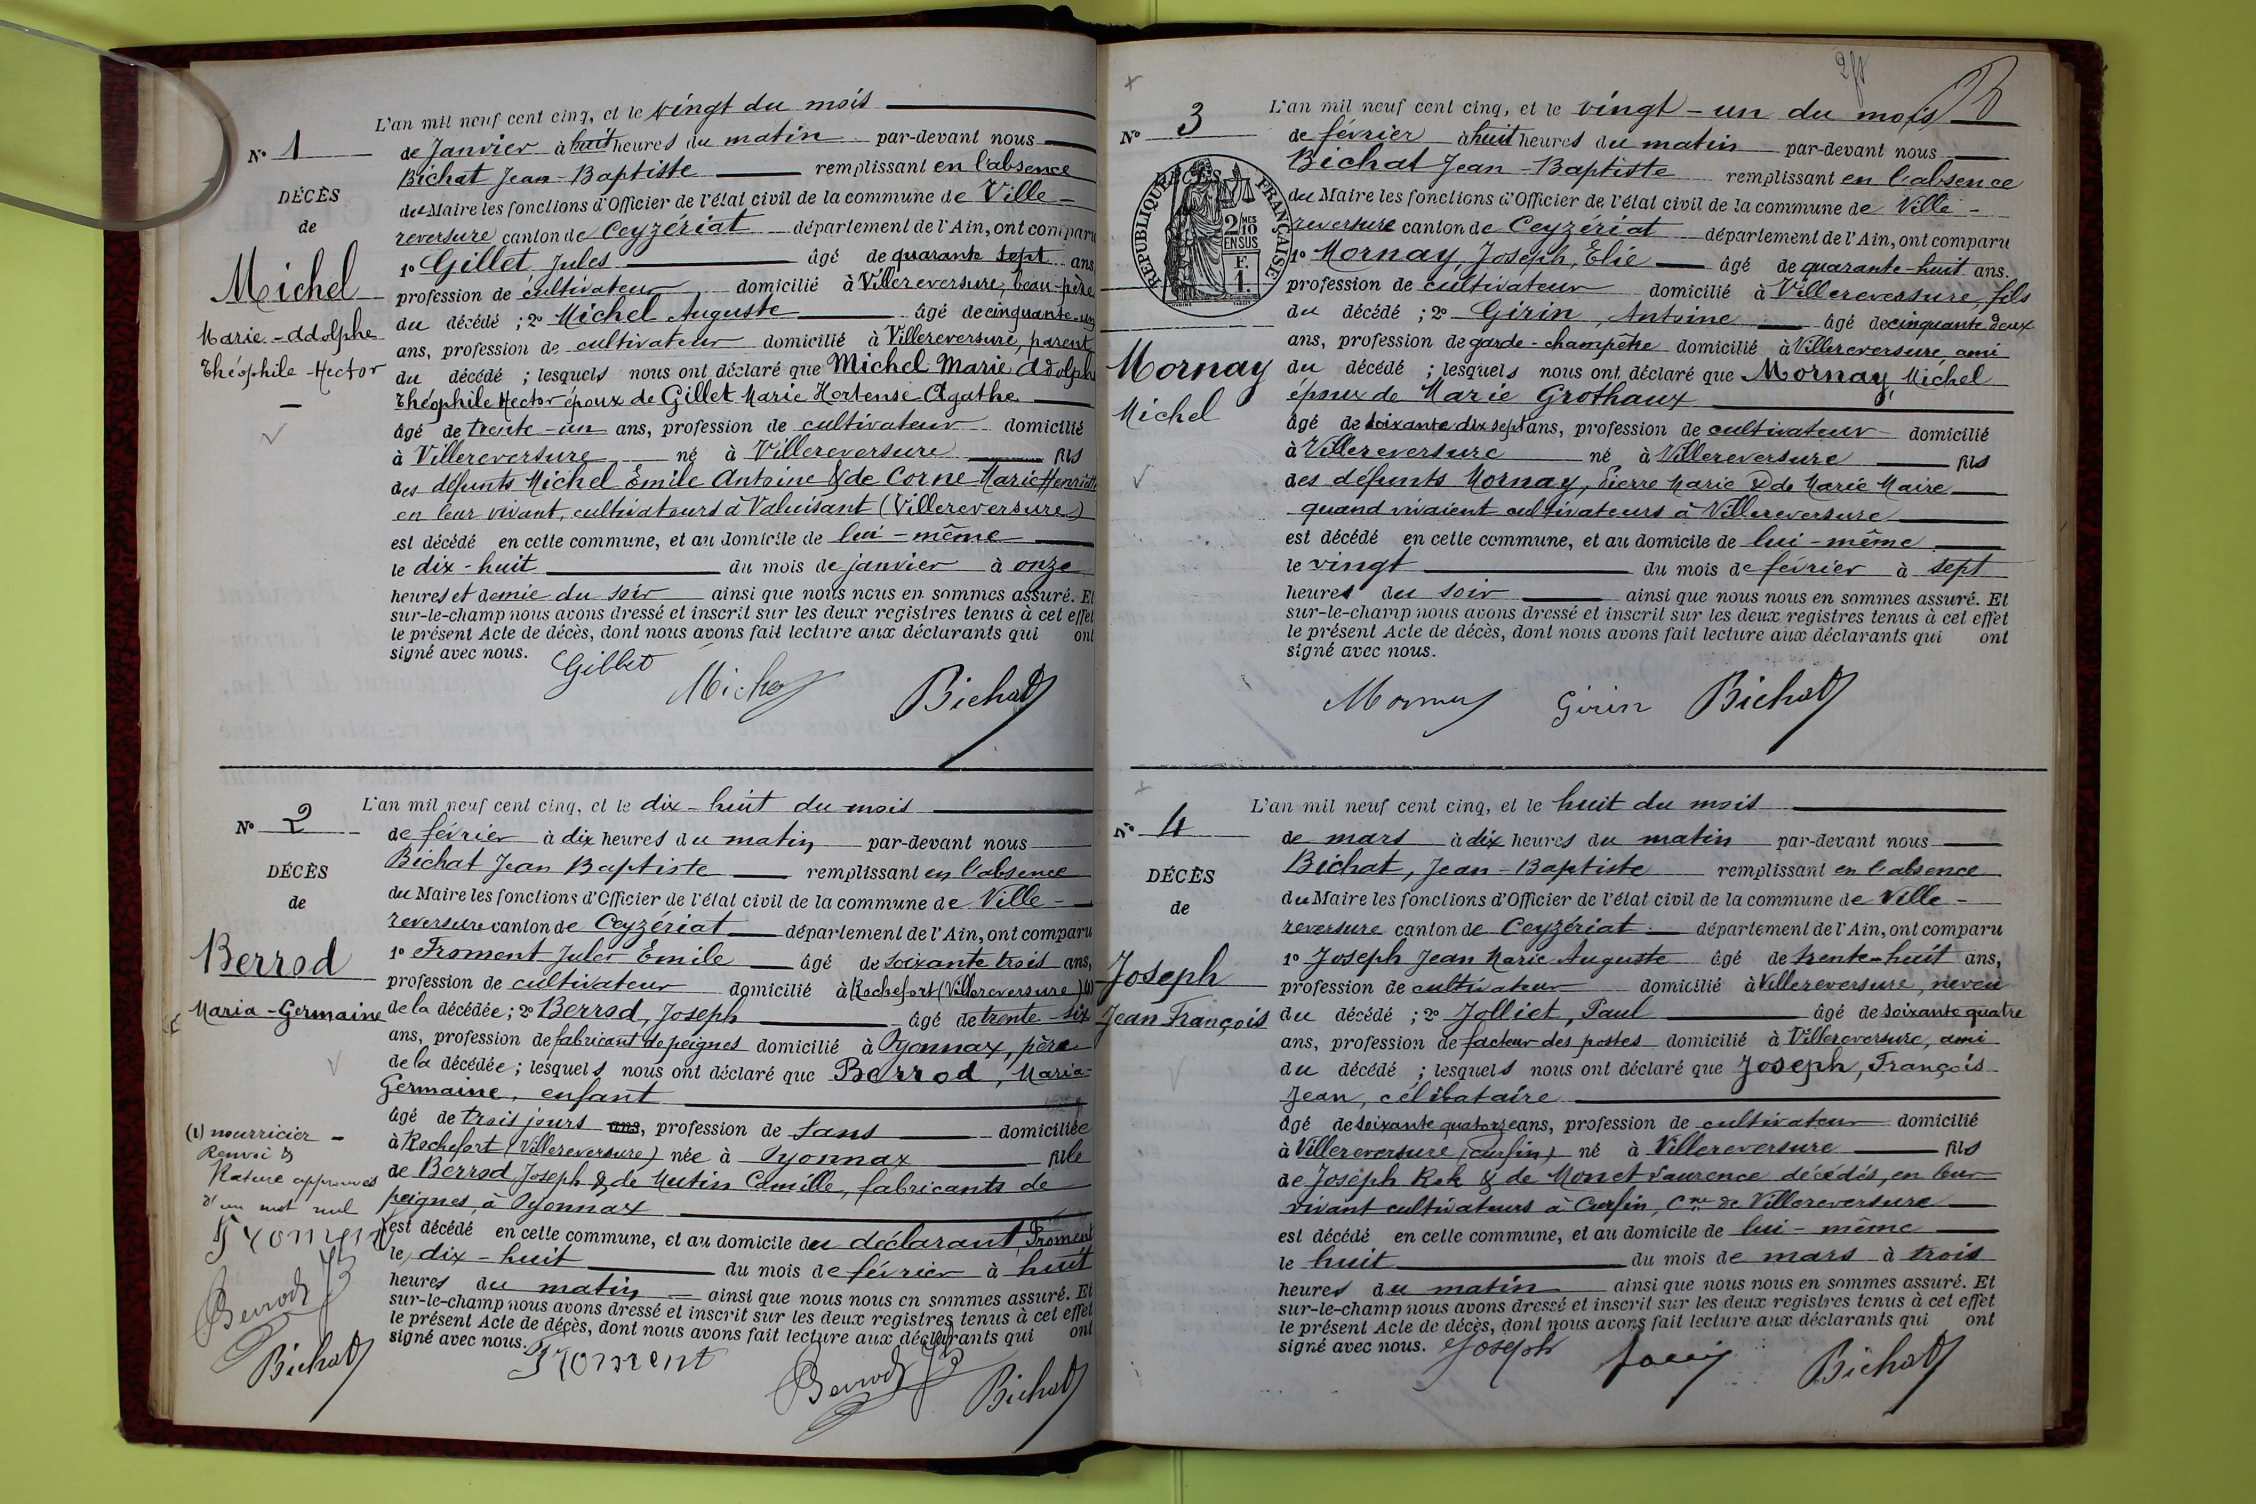 L'an mil neuf cent cinq, et le vingt du mois
N° 1
de Janvier à huit heures du matin par-devant nous
Bichat Jean-Baptiste remplissant en l'absence
DÉCÈS
du Maire les fonctions d'Officier de l'état civil de la commune de Ville-
de
reversure canton de Ceyzériat département de l'Ain, ont comparu
1° Gillet, Jules âgé de quarante sept ans
Michel
profession de cultivateur domicilié à Villereversure, beau-père
du décédé ; 2° Michel Auguste âgé de cinquante-un
Marie-Adolphe
ans, profession de cultivateur domicilié à Villereversure, parent
Théophile-Hector
du décédé ; lesquels nous ont déclaré que Michel Marie Adolphe
Théophile Hector époux de Gillet Marie Hortense Agathe
âgé de trente-un ans, profession de cultivateur domicilié
à Villereversure né à Villereversure fils
des défunts Michel Emile Antoine & de Corne Marie Henriette
en leur vivant, cultivateurs à Valuisant (Villereversure)
est décédé en cette commune, et au domicile de lui-même
le dix-huit du mois de janvier à onze
heures et demie du soir ainsi que nous nous en sommes assuré. Et
sur-le-champ nous avons dressé et inscrit sur les deux registres tenus à cet effet
le présent Acte de décès, dont nous avons fait lecture aux déclarants qui ont
signé avec nous.
Gillet Michel Bichat
L'an mil neuf cent cinq, et le dix-huit du mois
N° 2
de février à dix heures du matin par-devant nous
Bichat Jean Baptiste remplissant en l'absence
DÉCÈS
du Maire les fonctions d'Officier de l'état civil de la commune de Ville-
de
reversure canton de Ceyzériat département de l'Ain, ont comparu
1° Froment Jules Emile âgé de soixante trois ans,
Berrod
profession de cultivateur domicilié à Rochefort (Villereversure) (1)
Maria-Germaine
de la décédée ; 2° Berrod, Joseph âgé de trente-six
ans, profession de fabricant de peignes domicilié à Oyonnax, père
de la décédée ; lesquels nous ont déclaré que Berrod, Maria-
Germaine, enfant
âgé de trois jours ans, profession de sans domiciliée
(1) nourricier
à Rochefort (Villereversure) née à Oyonnax fille
Renvoi &
de Berrod Joseph & de Mutin Camille, fabricants de
Rature approuvés
d'un mot nul
peignes, à Oyonnax
Froment
est décédé en cette commune, et au domicile du déclarant, Froment
le dix-huit du mois de février à huit
heures du matin ainsi que nous nous en sommes assuré. Et
Berrod
sur-le-champ nous avons dressé et inscrit sur les deux registres tenus à cet effet
le présent Acte de décès, dont nous avons fait lecture aux déclarants qui ont
signé avec nous.
Bichat
Froment Berrod Bichat
L'an mil neuf cent cinq, et le vingt-un du mois
N° 3
de février à huit heures du matin par-devant nous
Bichat Jean-Baptiste remplissant en l'absence
RÉPUBLIQUE FRANÇAISE
2/10 MES
EN SUS
F.
1.
du Maire les fonctions d'Officier de l'état civil de la commune de Ville-
reversure canton de Ceyzériat département de l'Ain, ont comparu
1° Mornay, Joseph, Elie âgé de quarante-huit ans.
profession de cultivateur domicilié à Villereversure, fils
du décédé ; 2° Girin, Antoine âgé de cinquante deux
ans, profession de garde-champêtre domicilié à Villereversure, ami
Mornay
Michel
du décédé ; lesquels nous ont déclaré que Mornay, Michel
époux de Marie Grothaux
âgé de soixante dix sept ans, profession de cultivateur domicilié
à Villereversure né à Villereversure fils
des défunts Mornay, Pierre Marie & de Marie Maire
quand vivaient cultivateurs à Villereversure
est décédé en cette commune, et au domicile de lui-même
le vingt du mois de février à sept
heures du soir ainsi que nous nous en sommes assuré. Et
sur-le-champ nous avons dressé et inscrit sur les deux registres tenus à cet effet
le présent Acte de décès, dont nous avons fait lecture aux déclarants qui ont
signé avec nous.
Mornay Girin Bichat
L'an mil neuf cent cinq, et le huit du mois
N° 4
de mars à dix heures du matin par-devant nous
Bichat, Jean-Baptiste remplissant en l'absence
DÉCÈS
du Maire les fonctions d'Officier de l'état civil de la commune de Ville-
de
reversure canton de Ceyzériat département de l'Ain, ont comparu
1° Joseph Jean Marie Auguste âgé de trente-huit ans,
Joseph
profession de cultivateur domicilié à Villereversure, neveu
Jean François
du décédé ; 2° Jolliet, Paul âgé de soixante quatre
ans, profession de facteur des postes domicilié à Villereversure, ami
du décédé ; lesquels nous ont déclaré que Joseph, François
Jean, célibataire
âgé de soixante quatorze ans, profession de cultivateur domicilié
à Villereversure (Curfin) né à Villereversure fils
de Joseph & de Monet Laurence décédés, en leur
vivant cultivateurs à Curfin, Cne de Villereversure
est décédé en cette commune, et au domicile de lui-même
le huit du mois de mars à trois
heures du matin ainsi que nous nous en sommes assuré. Et
sur-le-champ nous avons dressé et inscrit sur les deux registres tenus à cet effet
le présent Acte de décès, dont nous avons fait lecture aux déclarants qui ont
signé avec nous.
Joseph Bichat